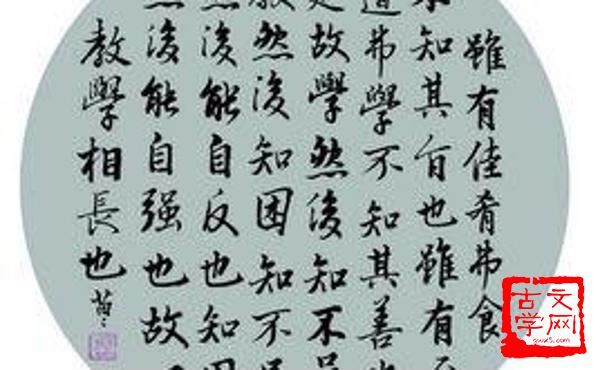 雖有佳肴弗食
知其旨也雖有
道弗學不知其善也
是故學然後知不足
教然後知困知不足
然後能自反也知困
然後能自强也故
教學相長也
古文
学网